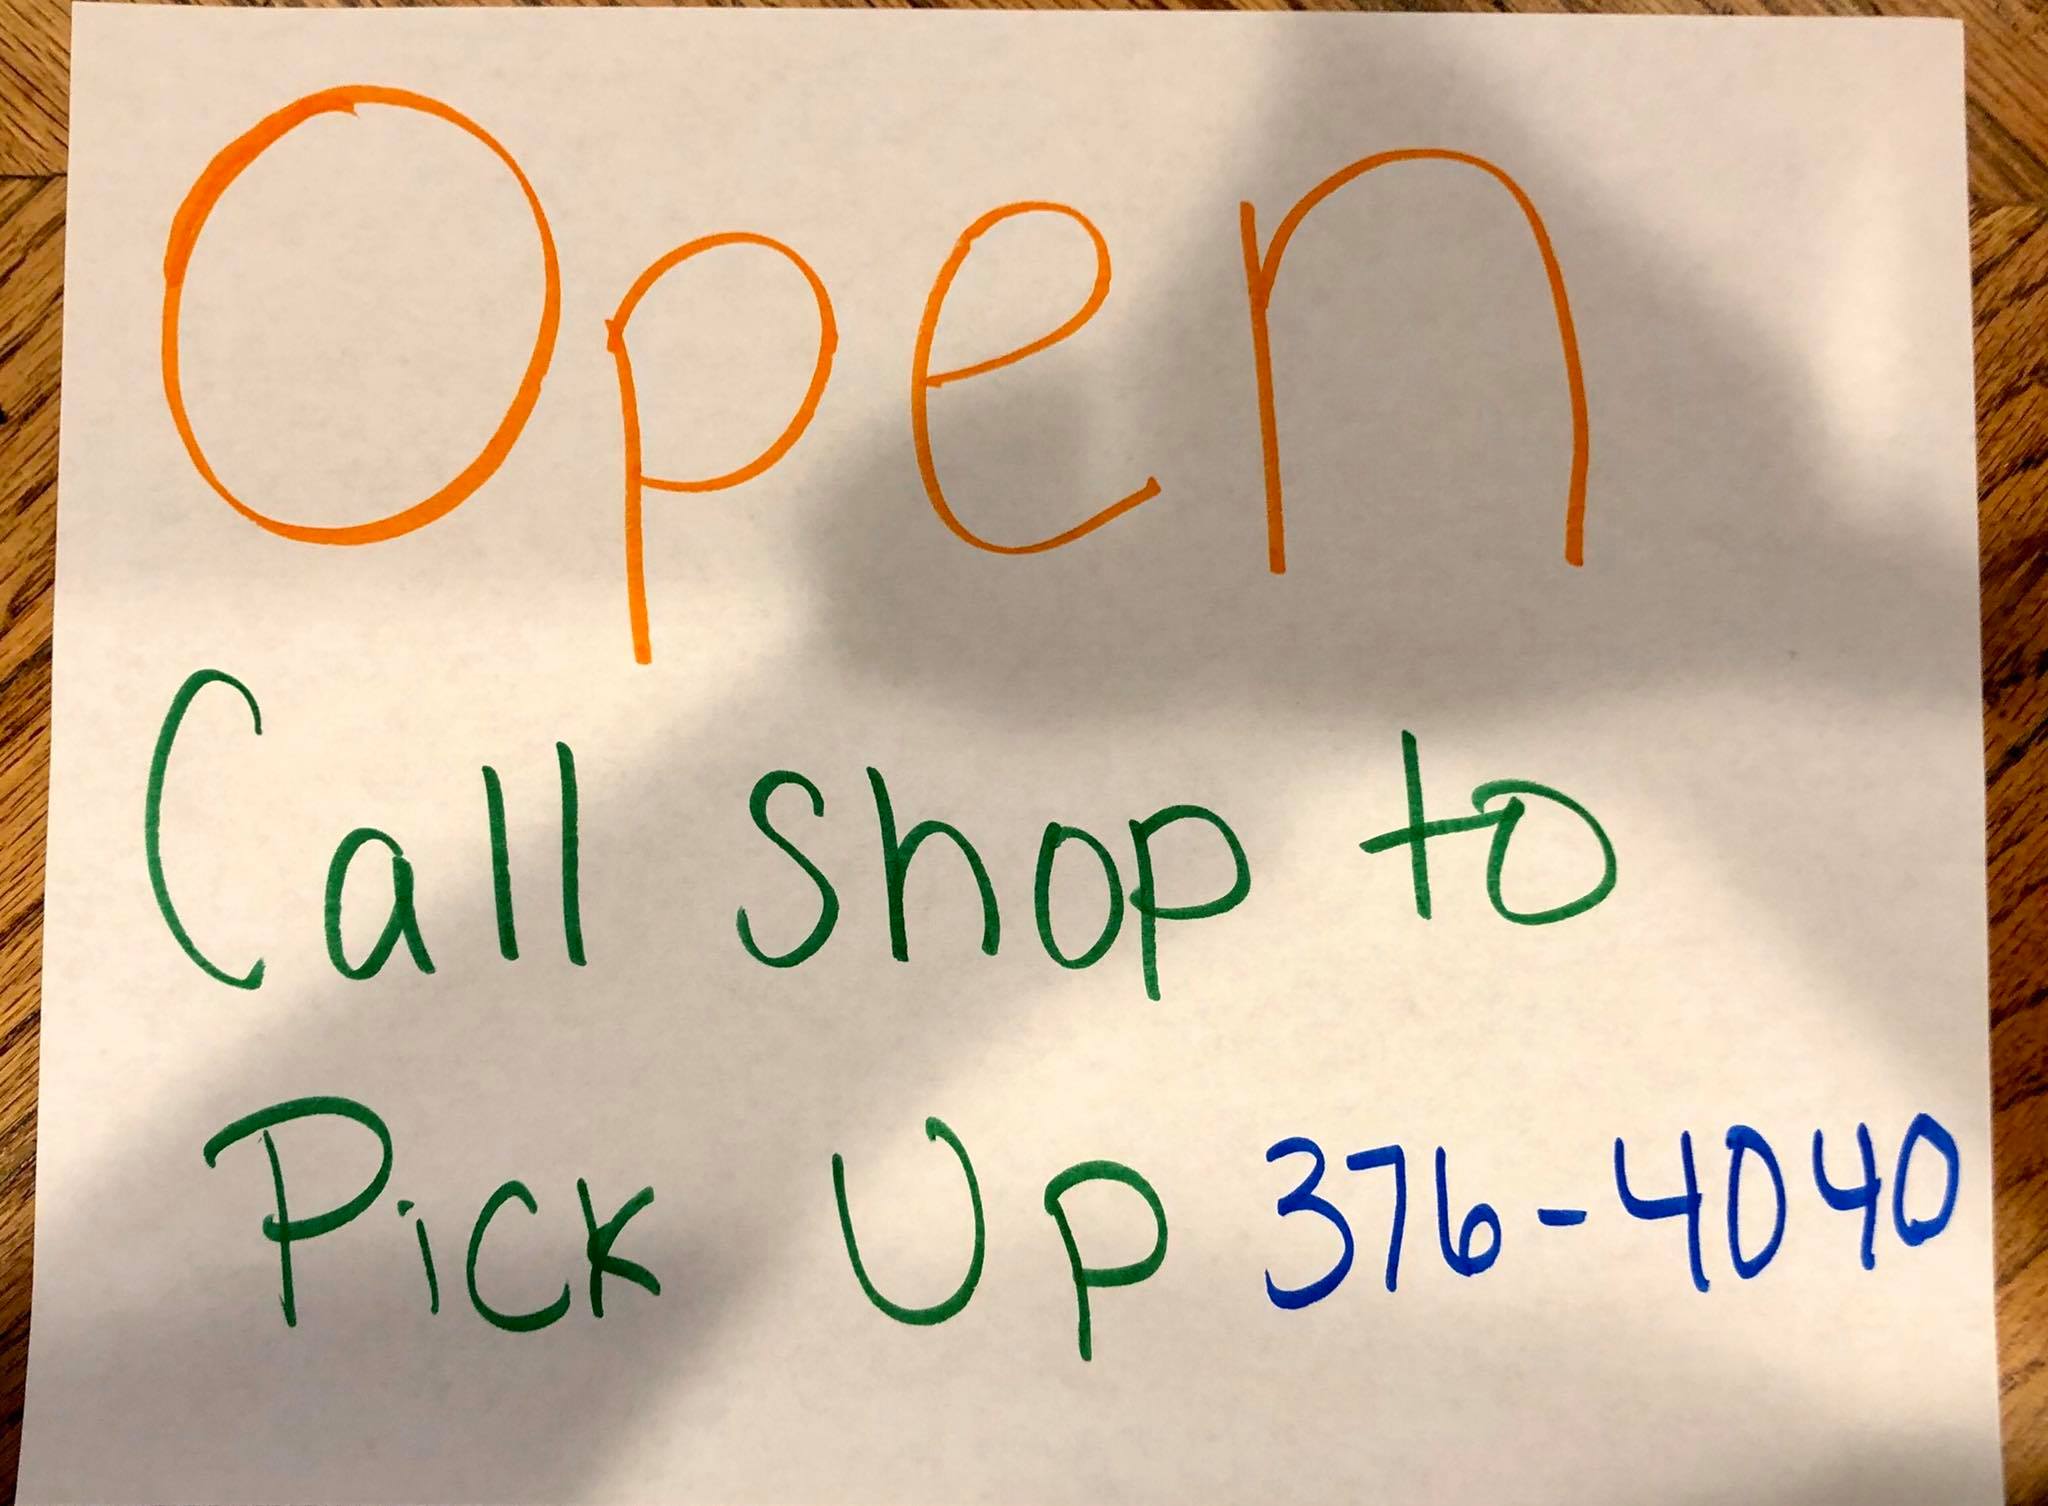 Open
Call shop to
Pick Up 376-4040